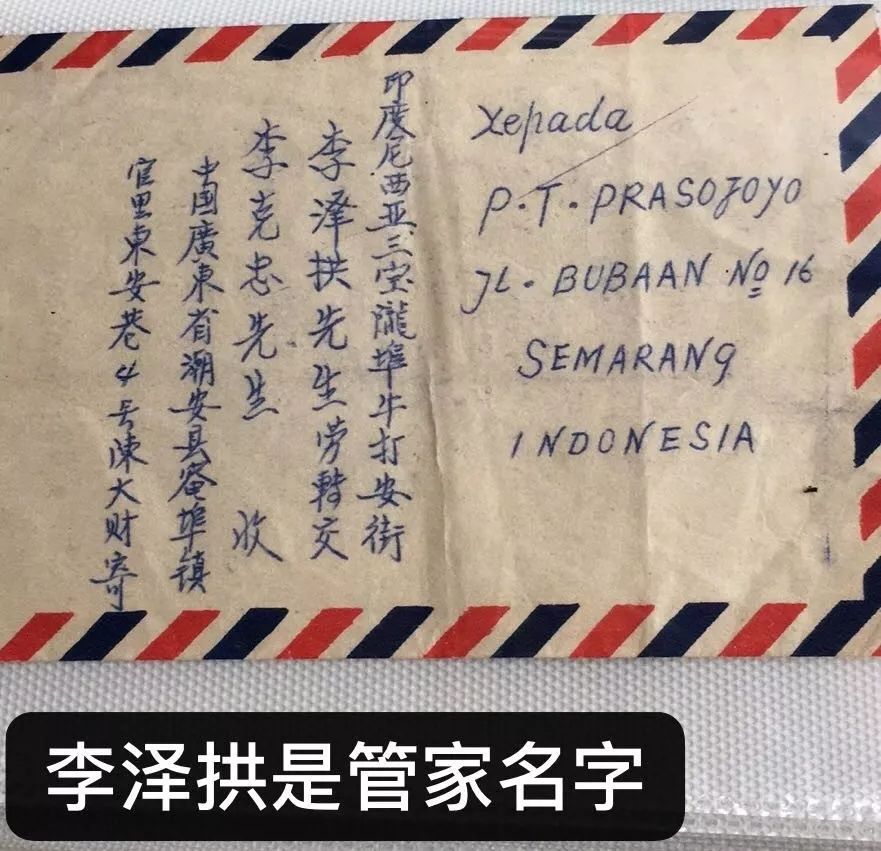 印度尼西亚三宝隴埠牛打安街
李泽拱先生劳轉交
李克忠先生 收
中国廣東省潮安县菴埠镇
官里東安巷4号陳大财寄
Kepada
P.T. PRASOJOYO
JL. BUBAAN No 16
SEMARANG
INDONESIA
李泽拱是管家名字